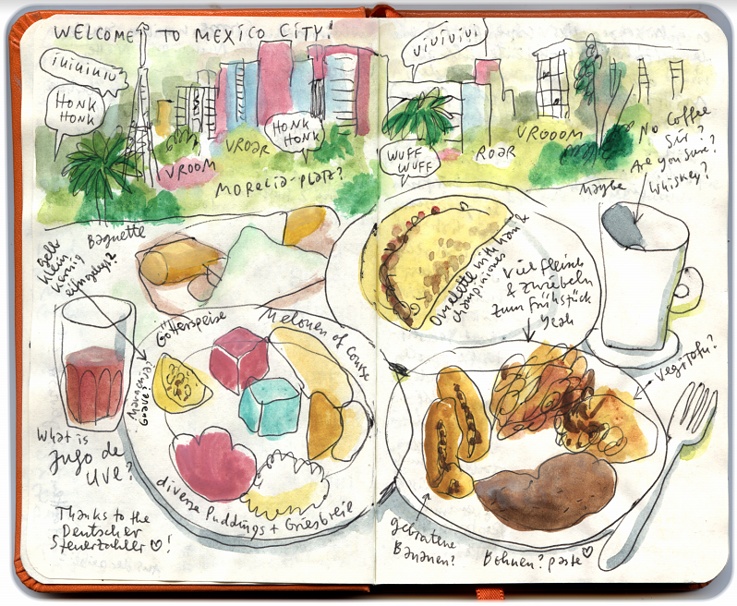 WELCOME TO MEXICO CITY!
iUiUiUiU
HONK
HONK
VROOM
VROAR
HONK
HONK
MORELIA-PLATZ?
UiViViVi
WUFF
WUFF
ROAR
VROOOM
No Coffee
Sir?
Are you sure?
Maybe
Whiskey?
Gelb
Klein
Körnig
Baguette
Götterspeise
Melonen of Course
Maracuja?
Guave?
What is
Jugo de
UVE?
diverse Puddings + Griesbreie
Thanks to the
Deutscher
Steuerzahler ♡!
Omelette with
Champiniones
Viel Fleisch
& Zwiebeln
zum Frühstück
Yeah
Vegitofu?
gebratene
Bananen?
Bohnen? paste ♡